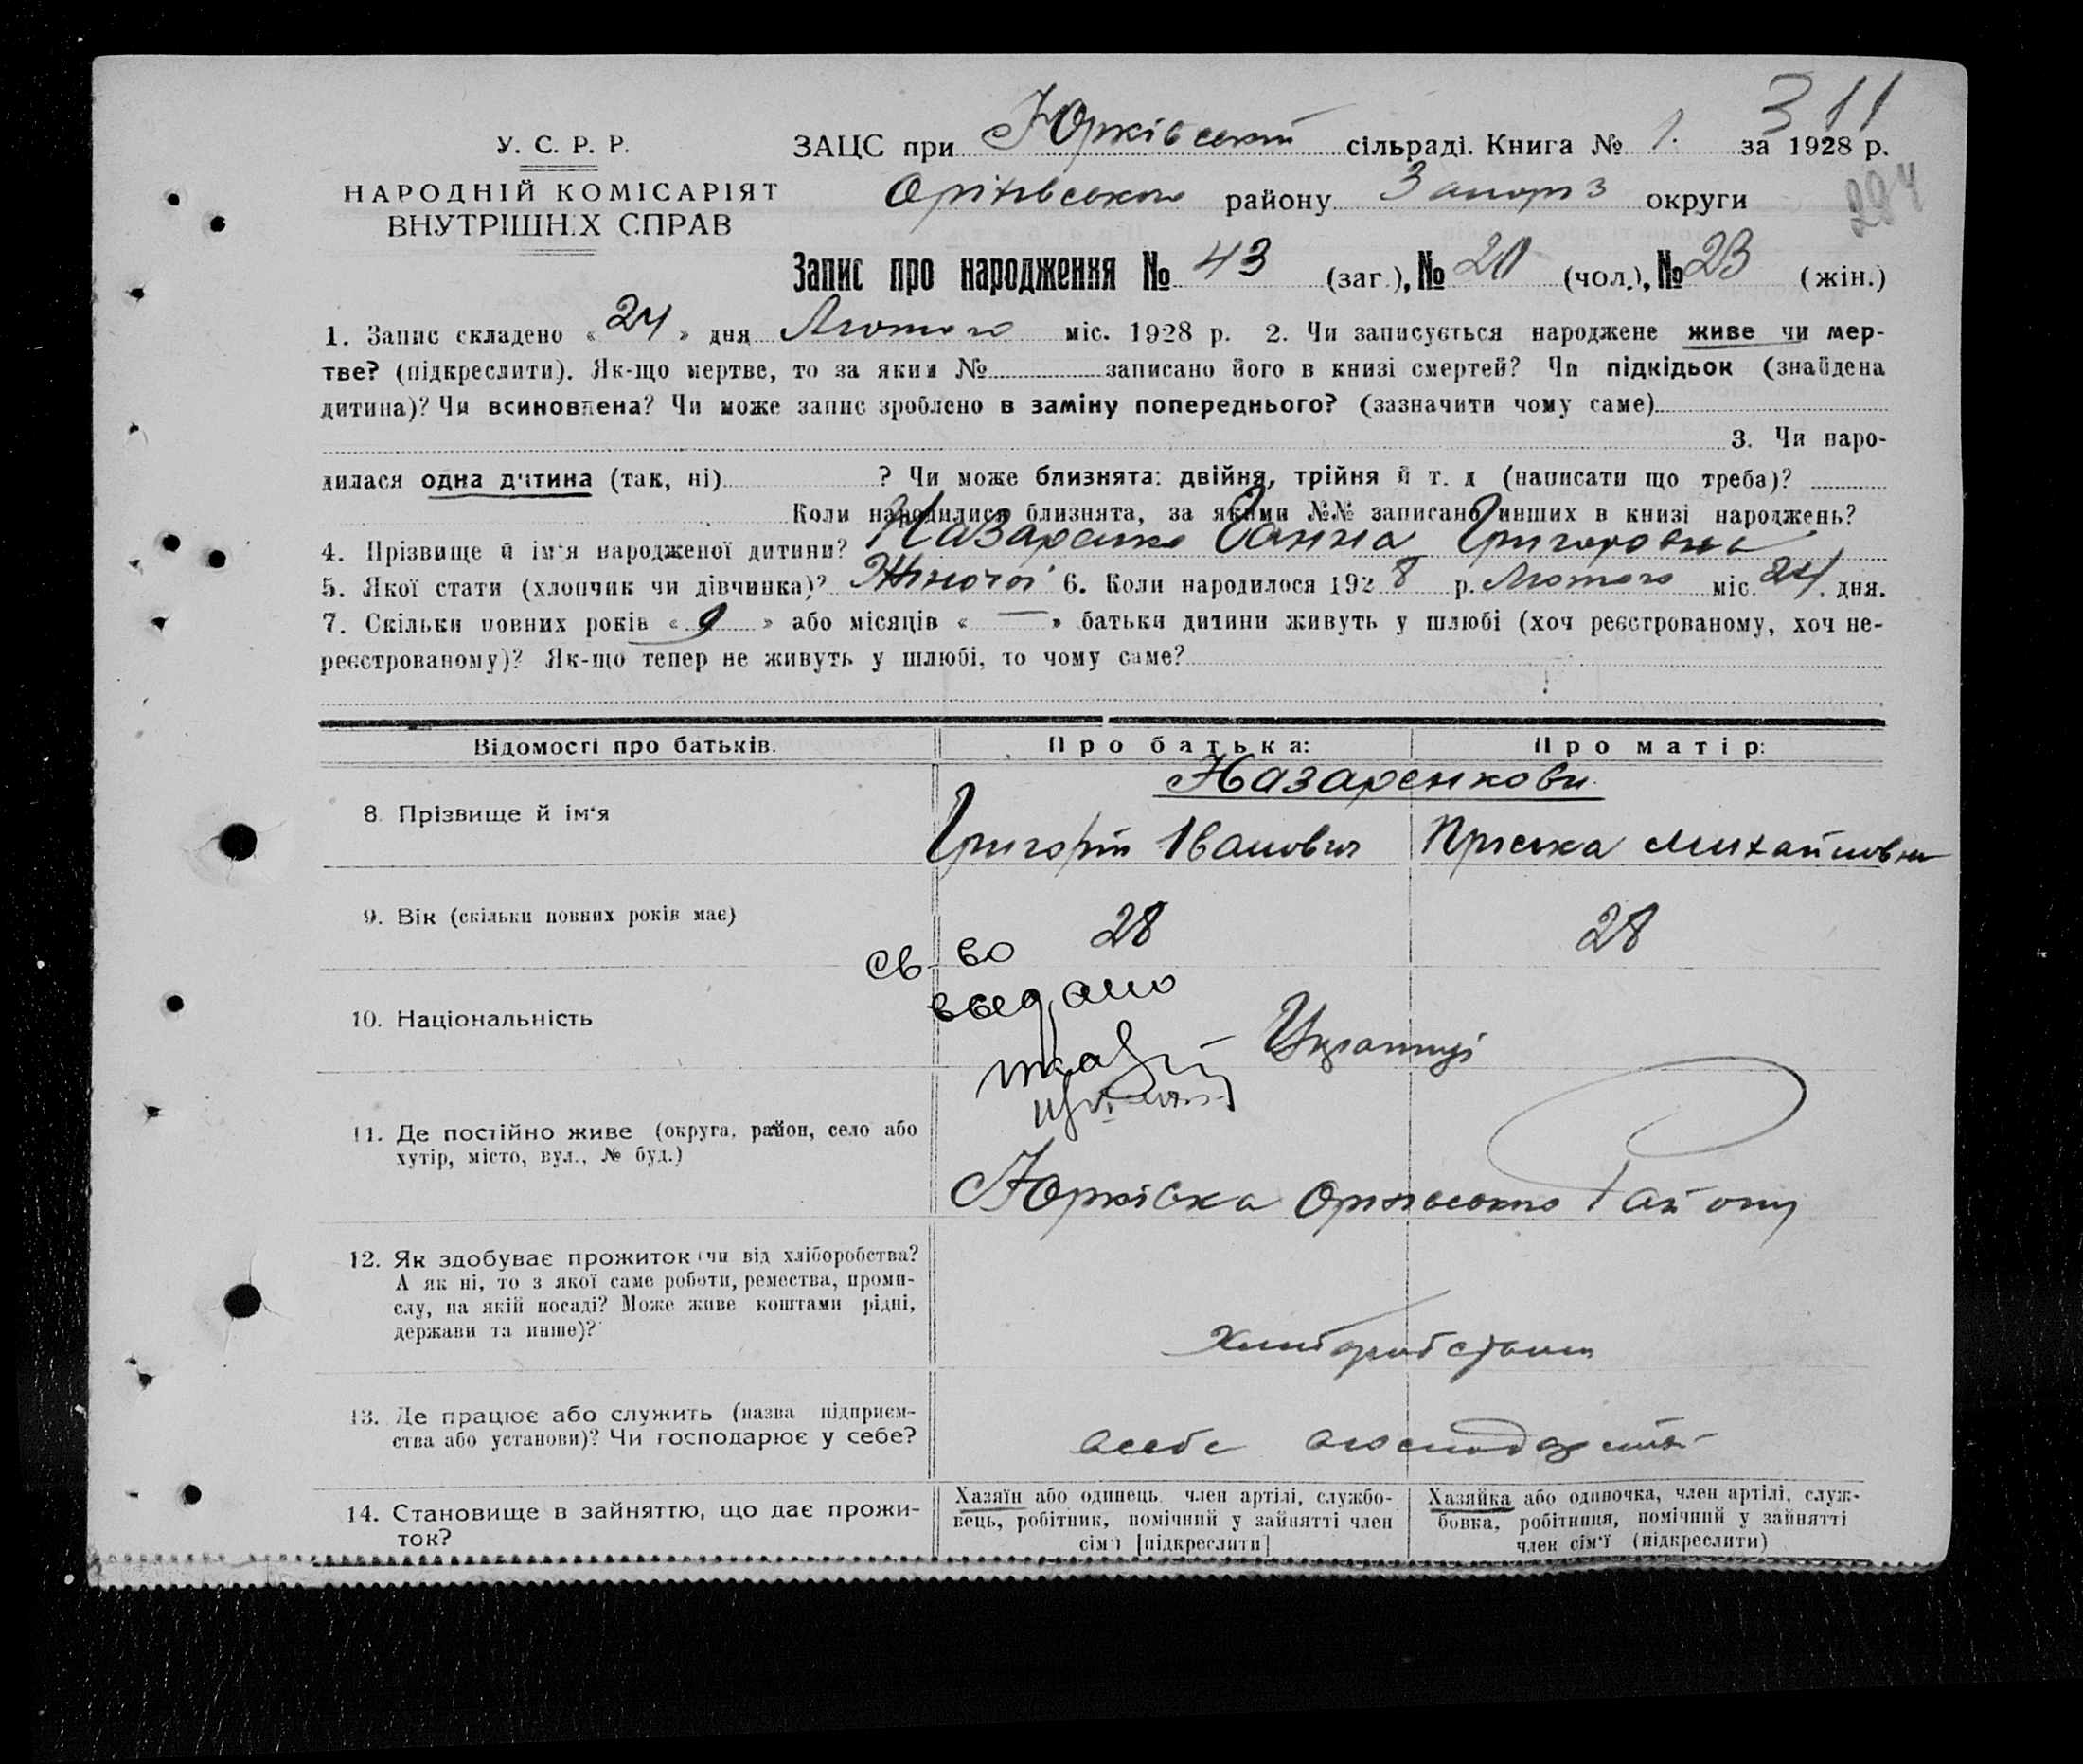 311
У. С. Р. Р.
НАРОДНІЙ КОМІСАРІЯТ
ВНУТРІШНІХ СПРАВ
ЗАЦС при Юрківській сільраді. Книга № 1. за 1928 р.
Оріхівського району Запоріз округи
284
Запис про народження № 43 (заг.), № 20 (чол.), № 23 (жін.)
1. Запис складено « 24 » дня Лютого міс. 1928 р. 2. Чи записується народжене живе чи мер-
тве? (підкреслити). Як-що мертве, то за яким № записано його в книзі смертей? Чи підкідьок (знайдена
дитина)? Чи всиновлена? Чи може запис зроблено в заміну попереднього? (зазначити чому саме)
3. Чи наро-
дилася одна дитина (так, ні) ? Чи може близнята: двійня, трійня й т. д (написати що треба)?
Коли народилися близнята, за якими №№ записано инших в книзі народжень?
4. Прізвище й ім'я народженої дитини? Назаренко Ганна Григоровна
5. Якої стати (хлопчик чи дівчинка)? Жіночої 6. Коли народилося 1928 р. Лютого міс. 24. дня.
7. Скільки повних років « 9 » або місяців « — » батьки дитини живуть у шлюбі (хоч реєстрованому, хоч не-
реєстрованому)? Як-що тепер не живуть у шлюбі, то чому саме?
Відомості про батьків. Про батька: Про матір:
Назаренкови
8. Прізвище й ім'я Григорій Іванович Пріська Михайловна
9. Вік (скільки повних років має) 28 28
св-во
выдано
10. Національність Українці
11. Де постійно живе (округа, район, село або
хутір, місто, вул., № буд.)
Юрківка Оріхівського Району
12. Як здобуває прожиток (чи від хліборобства?
А як ні, то з якої саме роботи, ремества, проми-
слу, на якій посаді? Може живе коштами рідні,
держави та инше)?
Хліборобством
13. Де працює або служить (назва підприєм-
ства або установи)? Чи господарює у себе?
14. Становище в зайняттю, що дає прожи-
ток?
Хазяїн або одинець, член артілі, службо-
вець, робітник, помічний у зайнятті член
сім'ї [підкреслити]
Хазяйка або одиночка, член артілі, служ-
бовка, робітниця, помічний у зайнятті
член сім'ї (підкреслити)